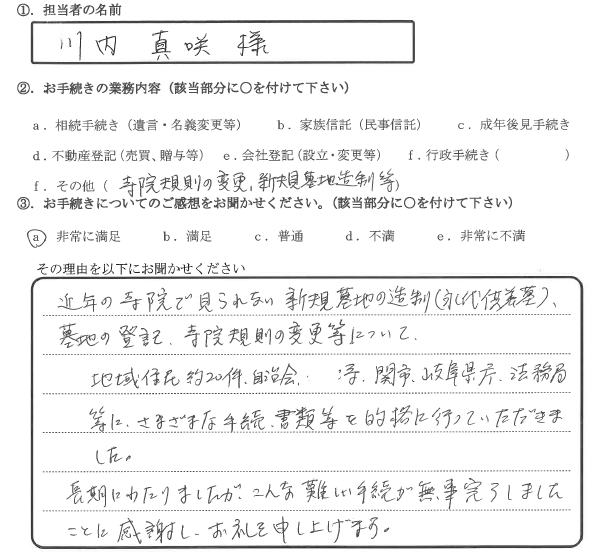 ①．担当者の名前
川内 真咲 様
②．お手続きの業務内容（該当部分に○を付けて下さい）
a．相続手続き（遺言・名義変更等） b．家族信託（民事信託） c．成年後見手続き
d．不動産登記（売買、贈与等） e．会社登記（設立・変更等） f．行政手続き（ ）
f．その他（ 寺院規則の変更、新規墓地造制等）
③．お手続きについてのご感想をお聞かせください。（該当部分に○を付けて下さい）
a 非常に満足 b．満足 c．普通 d．不満 e．非常に不満
その理由を以下にお聞かせください
近年の寺院で見られない新規墓地の造制（永代供養墓）、
墓地の登記、寺院規則の変更等について、
地域住民約20件、自治会、 関市、岐阜県庁、法務局
等に、さまざまな手続、書類等を的格に行っていただきま
した。
長期にわたりましたが、こんな難しい手続が無事完了しました
ことに感謝し、お礼を申し上げます。